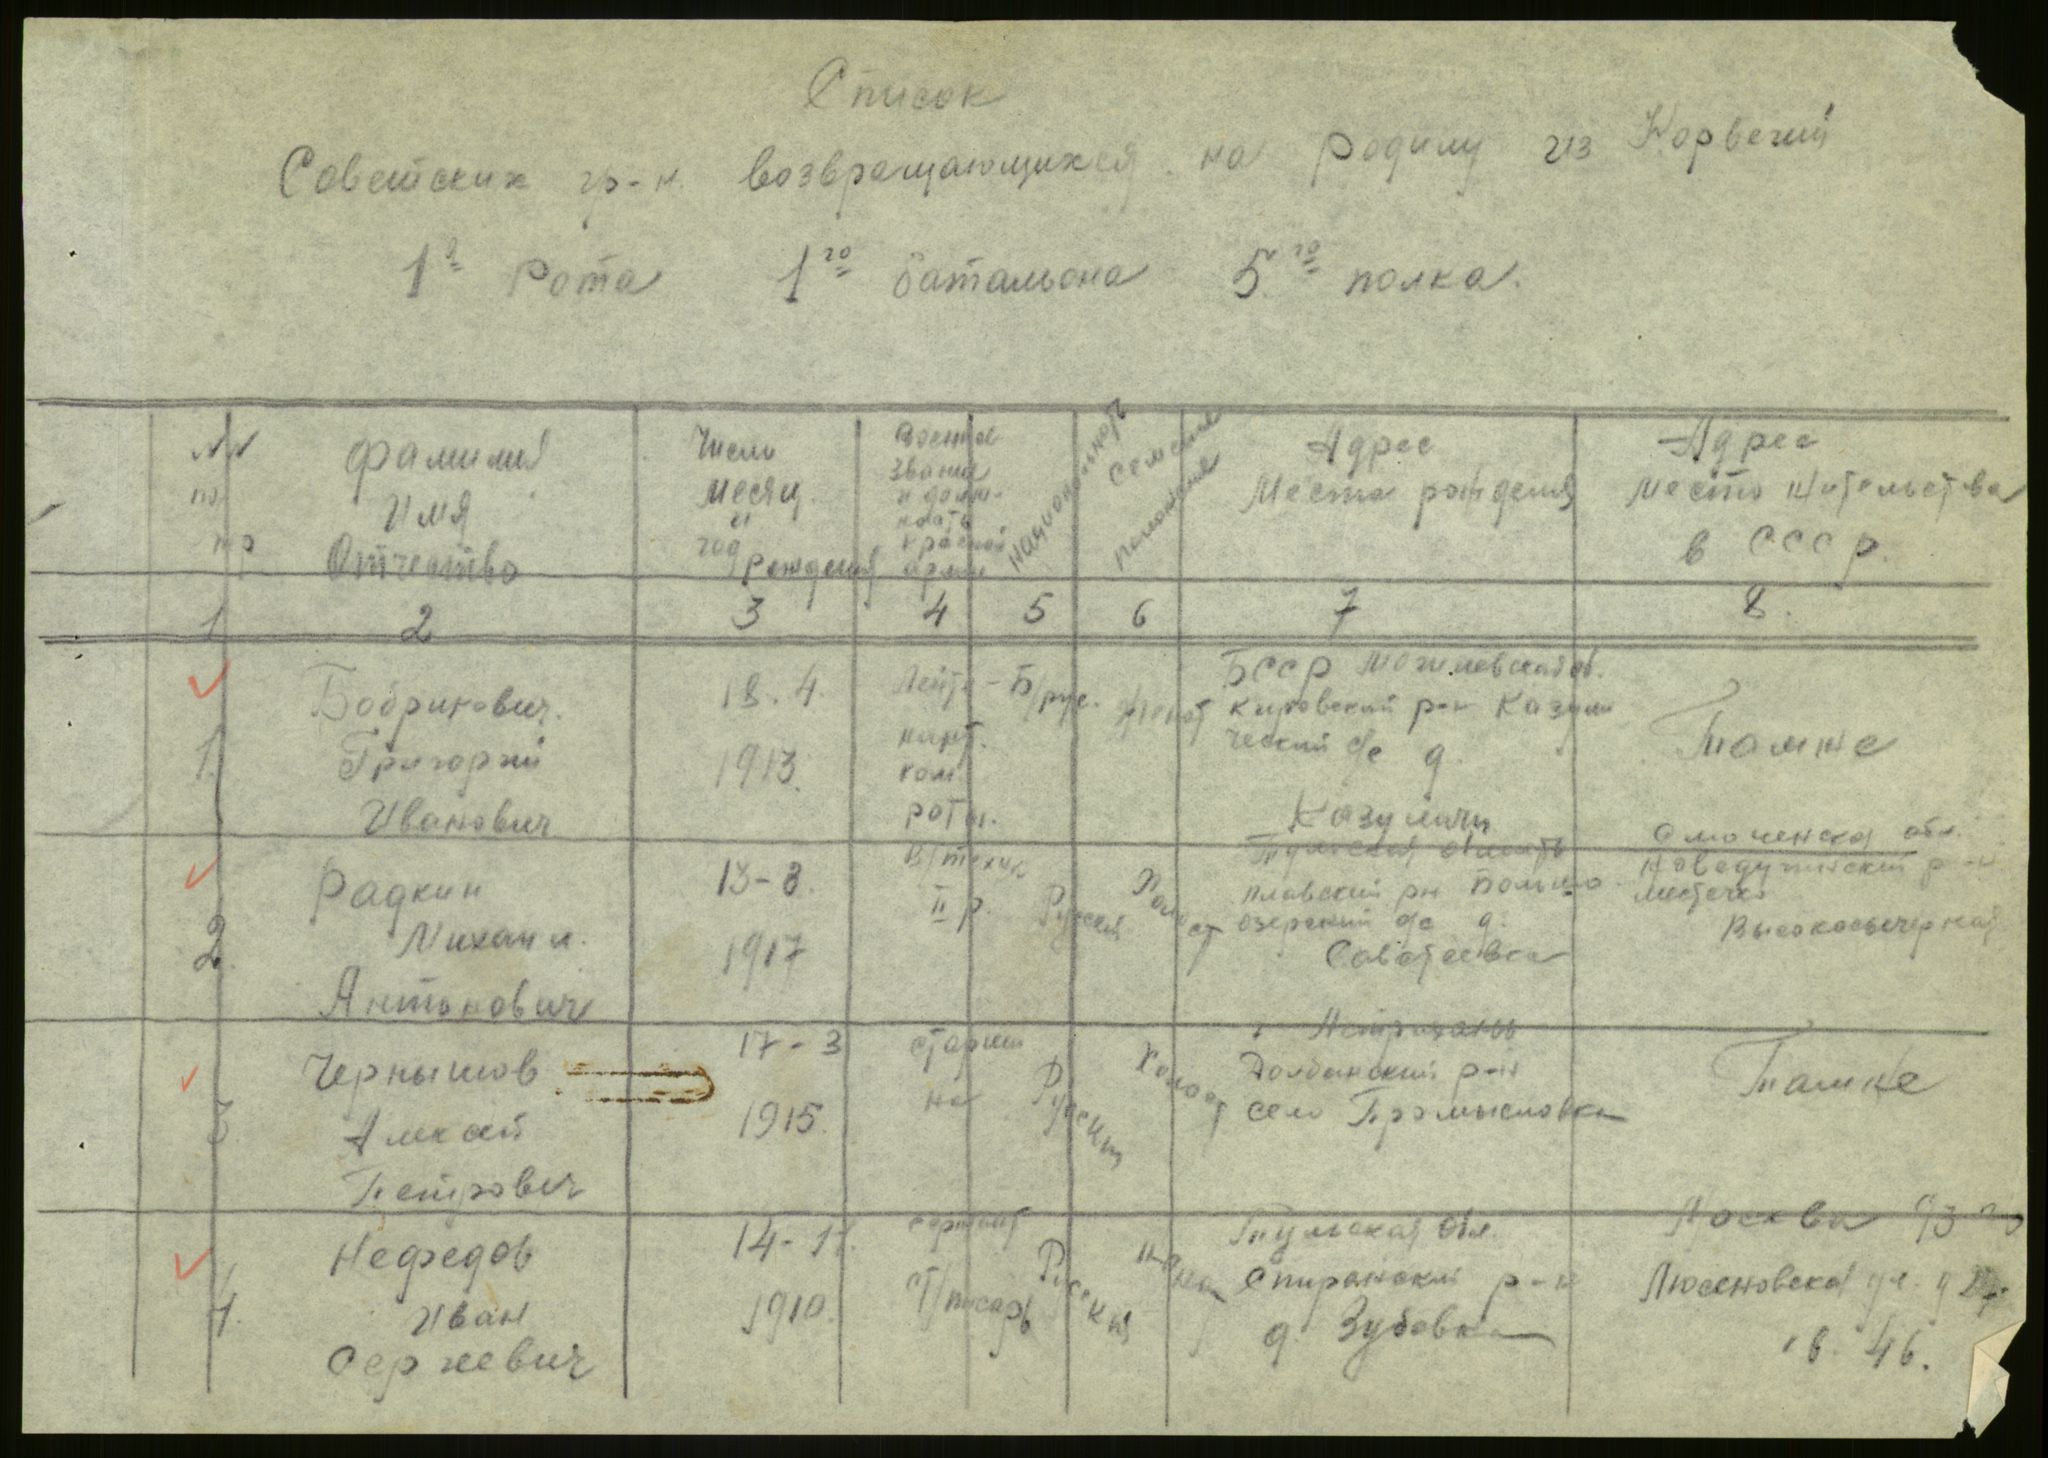 Список
Советских гр-н. возвращающихся на родину из Норвегий
1я Рота 1го батальона 5го полка.
№№ по пр
Фамилия Имя Отчество
Число Месяц и год рождения
Военное звание и долж-ность красной армии
Национальность
Семейное положение
Адрес Места рождения
Адрес место жительства в СССР.
1 2 3 4 5 6 7 8.
1.
Бобрикович.
Григорий
Иванович
18. 4.
1913.
Лейте-
нант.
ком.
роты.
Б/рус.
Женат
БССР Могилевская об.
Кировский р-н Казули
ческий с/с д.
Казуличи
Тамже
2.
Радкин
Михаил.
Антонович
13-8.
1917
В/техник
II р.
Русский
Холост
Тульская область
плавский рн Больше-
озерский с/с д.
Саватеевка
Смоленска обл.
р-н
местечко
3.
Чернышов
Алексей
Петрович
17-3
1915.
старши
на
Русский
Холост
г. Астрахань
Долбанский р-н
село Промысловка
Тамже
4.
Нефедов
Иван
Сергеевич
14-11.
1910.
сержант
Ст/писарь
Русский
Тульская обл.
р-н
д. Зубовка
Москва 93
Люсеновская ул. д
кв. 46.